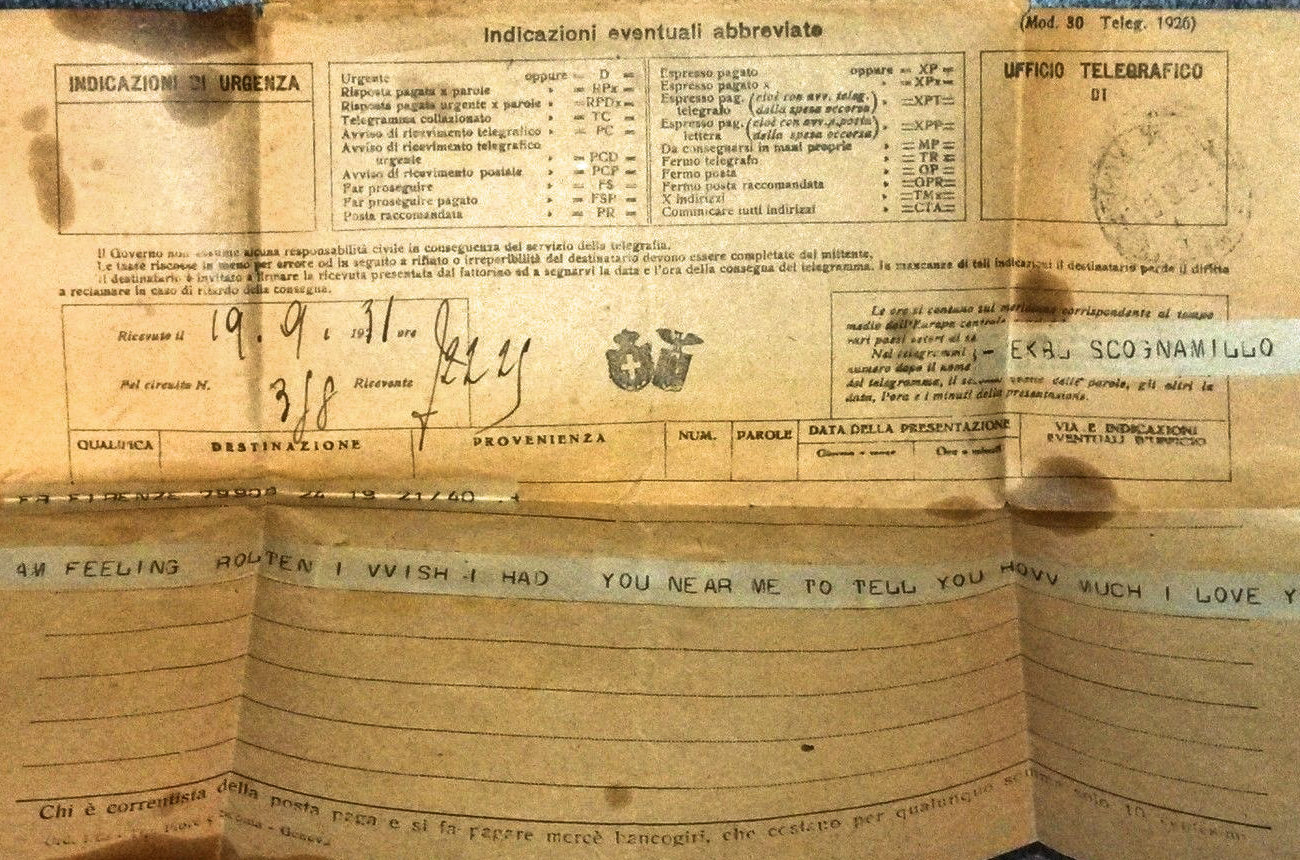 Indicazioni eventuali abbreviate
(Mod. 30 Teleg. 1926)
INDICAZIONI DI URGENZA
Urgente oppure = D =
Risposta pagata x parole » = RPx =
Risposta pagata urgente x parole » =RPDx=
Telegramma collazionato » = TC =
Avviso di ricevimento telegrafico » = PC =
Avviso di ricevimento telegrafico
urgente » = PCD =
Avviso di ricevimento postale » = PCP =
Far proseguire » = FS =
Far proseguire pagato » = FSP =
Posta raccomandata » = PR =
Espresso pagato oppure = XP =
Espresso pagato x » = XPx =
Espresso pag. (cioè con avv. teleg.
telegrafo dalla spesa occorsa) » =XPT=
Espresso pag. (cioè con avv. p. posta
lettera della spesa occorsa) » =XPP=
Da consegnarsi in mani proprie » = MP =
Fermo telegrafo » = TR =
Fermo posta » = GP =
Fermo posta raccomandata » =GPR=
X indirizzi » =TMx=
Comunicare tutti indirizzi » =CTA=
UFFICIO TELEGRAFICO
DI
Il Governo non assume alcuna responsabilità civile in conseguenza del servizio della telegrafia.
Le tasse riscosse in meno per errore od in seguito a rifiuto o irreperibilità del destinatario devono essere completate dal mittente.
Il destinatario è invitato a firmare la ricevuta presentata dal fattorino ed a segnarvi la data e l'ora della consegna del telegramma. In mancanza di tali indicazioni il destinatario perde il diritto
a reclamare in caso di ritardo della consegna.
Ricevuto il 19. 9. 1931 ore
Pel circuito N. 3/8 Ricevente
Le ore si contano sul meridiano corrispondente al tempo
medio dell'Europa centrale
Nei telegrammi
numero dopo il nome
del telegramma, il delle parole, gli altri la
data, l'ora e i minuti della presentazione.
SCOGNAMILLO
QUALIFICA DESTINAZIONE PROVENIENZA NUM. PAROLE DATA DELLA PRESENTAZIONE VIA E INDICAZIONI
EVENTUALI D'UFFICIO
Giorno e mese Ore e minuti
FIRENZE 24 19 21/40
AM FEELING ROLTEN I VVISH I HAD YOU NEAR ME TO TELL YOU HOVV MUCH I LOVE Y
Chi è correntista della posta paga e si fa pagare mercè bancogiri, che costano per qualunque somma solo 10 centesimi
Genova